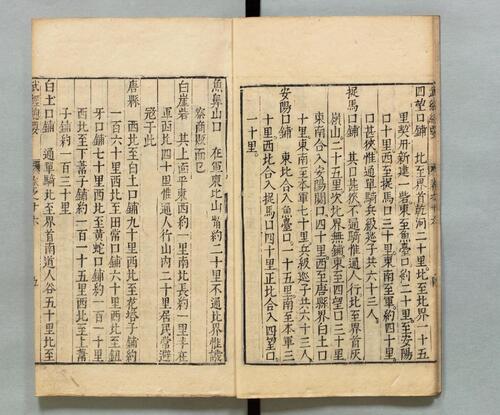 四望口鋪 北至界首乾河二十里北至北界一十五
里契丹新建一砦東至魚臺口約二十里至安陽
口十里西至捉馬口三十里東南至軍約四十里
口甚狹惟通單騎兵級廵子共六十三人
捉馬口鋪 其口甚狹不通騎惟通人行北至界首灰
嶺山二十五里次北界無鋪東至四望口三十里
東南合入安陽關口四十里西至唐縣界白土口
十里東南至本軍七十里兵級廵子共三十三人
安陽口鋪 東北合入魚臺口一十五里南至本軍三
十里西北合入捉馬口四十里正北合入四望口
一十里
魚鼻山口 在軍東北山 約二十里不通北界惟譏
察商販而已
白崖砦 其上面平東西約一里南北長約一里半在
軍西北四十里惟通人行山內二十里居民常避
寇于此
唐縣 西北至白土口鋪九十里西北至花塔子鋪約
一百六十里西北至田常口鋪六十里西北至
牙口鋪七十里西北至黃蛇口鋪約一百一十里
西北至下葦子鋪約一百一十五里西北至上葦
子鋪約一百三十里
白土口鋪 通單騎北至界首南道人谷五十里北至